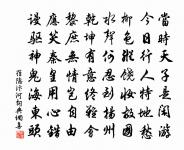 當時天子是閒遊
今日行人特地愁
柳色縱饒妝故國
水聲何忍到揚州
乾坤有意終難會
黎庶無情豈自由
應笑秦皇用心錯
謾驅神鬼海東頭
羅隱汴河